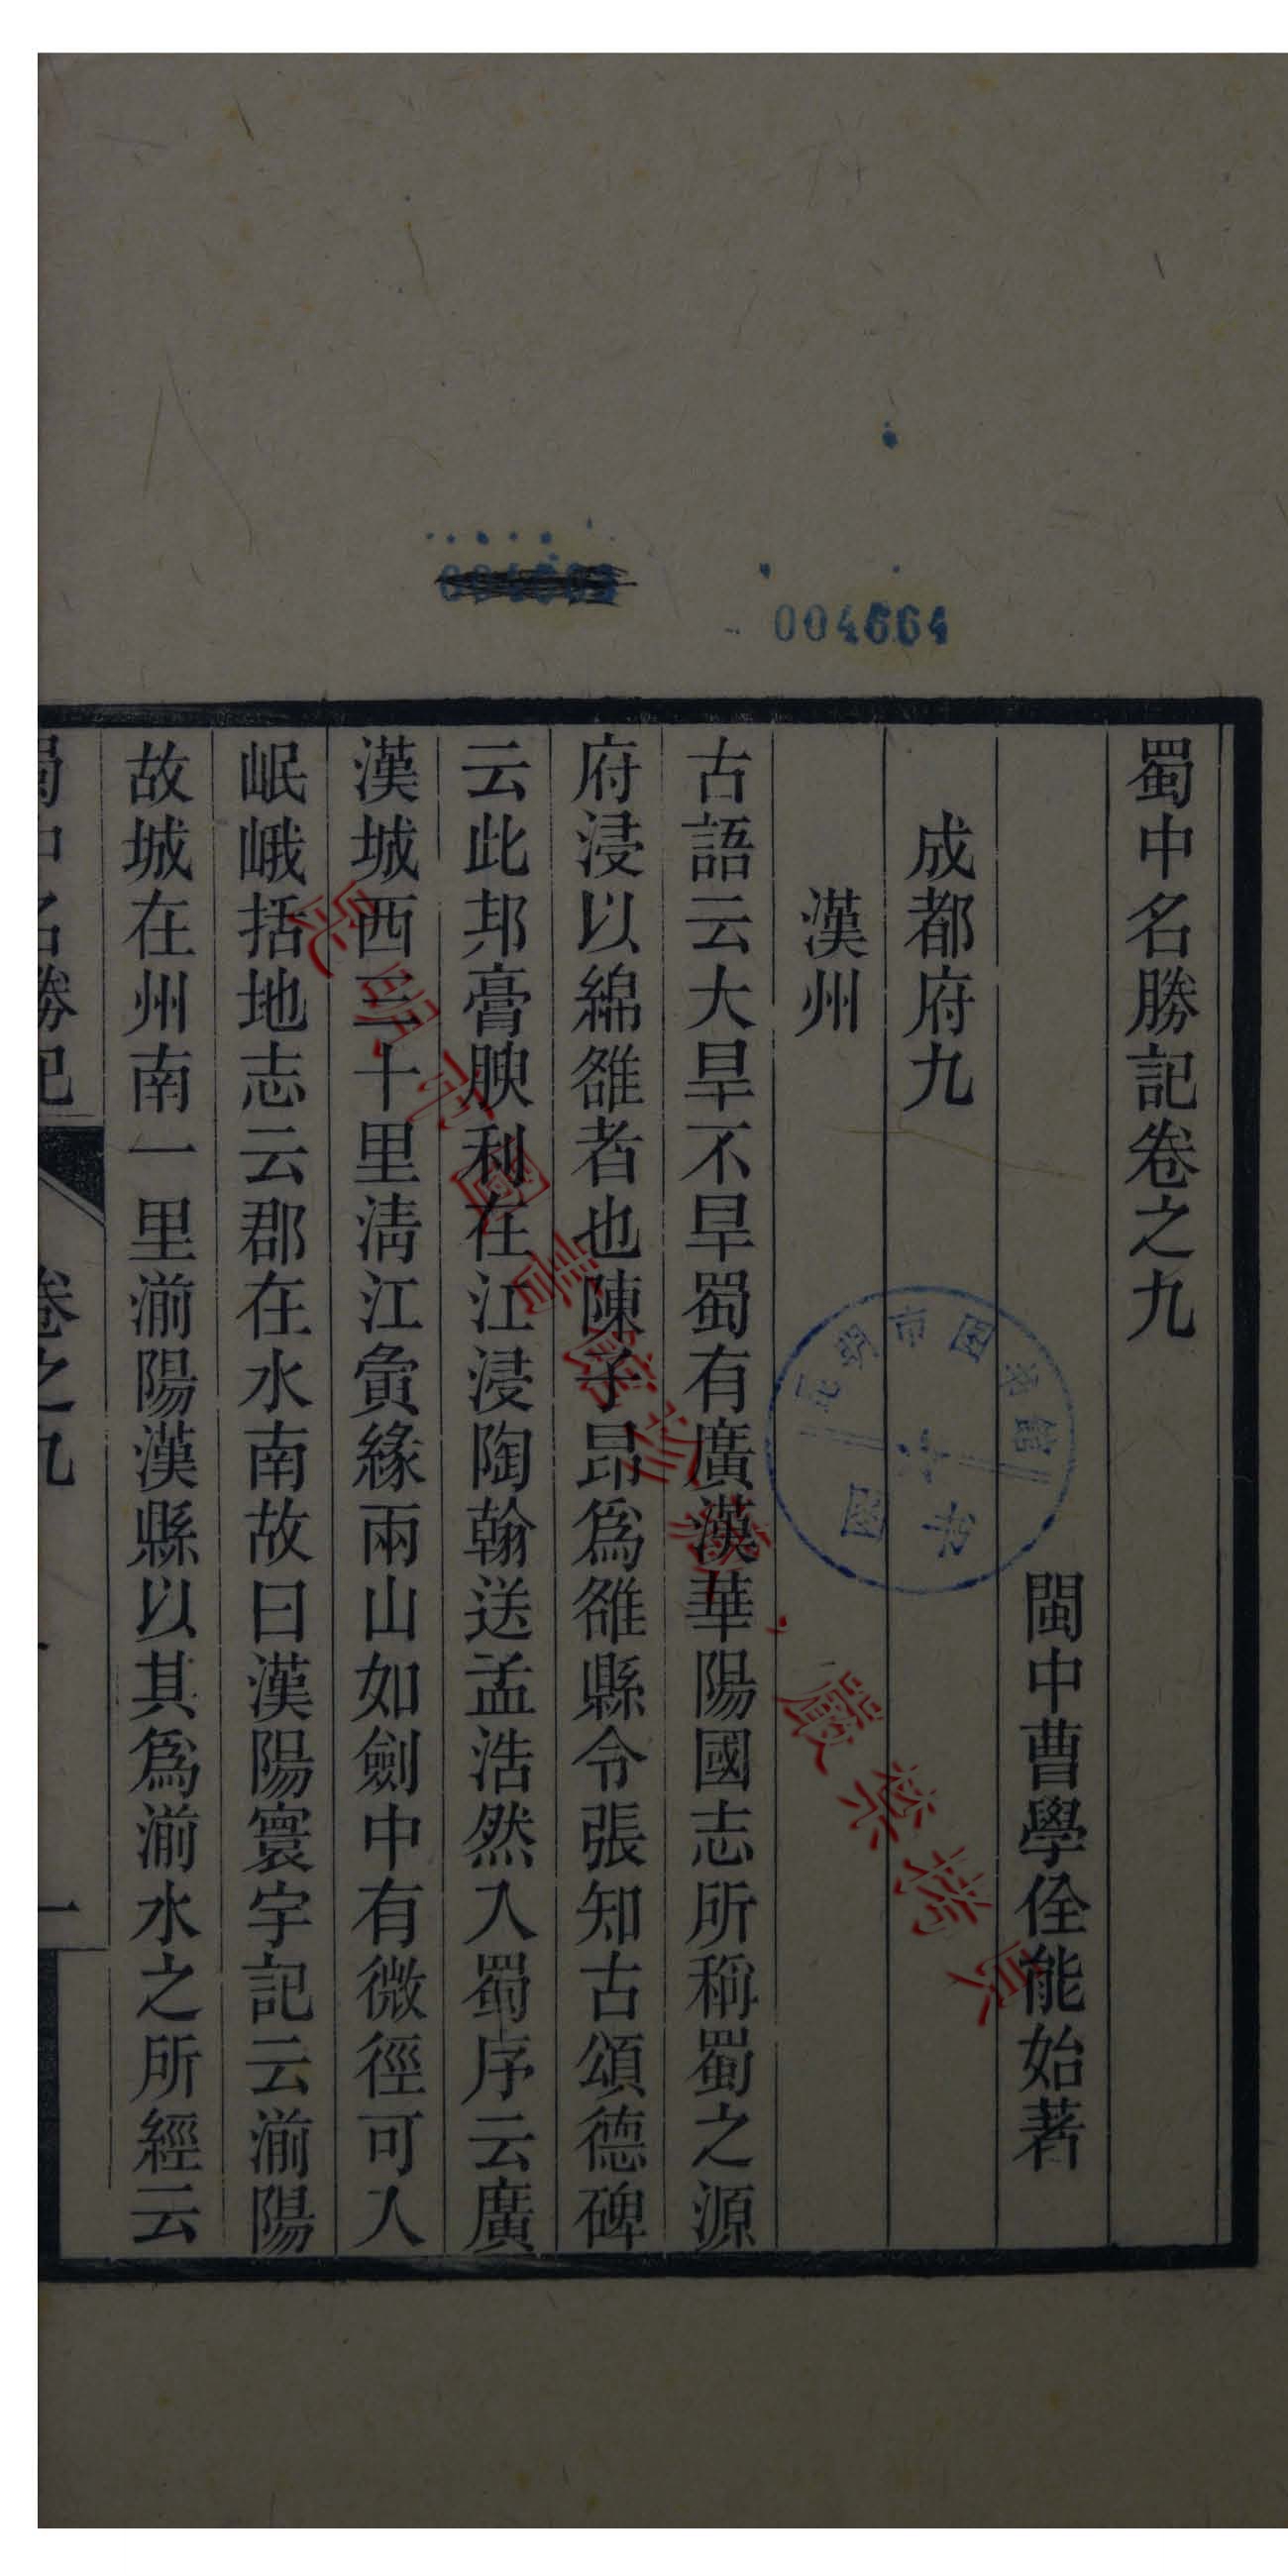 蜀中名勝記卷之九
閩中曹學佺能始著
成都府九
漢州
古語云大旱不旱蜀有廣漢華陽國志所稱蜀之源
府浸以綿雒者也陳子昂爲雒縣令張知古頌德碑
云此邦膏腴利在江浸陶翰送孟浩然入蜀序云廣
漢城西三十里淸江夤緣兩山如劍中有微徑可入
岷峨括地志云郡在水南故曰漢陽寰宇記云湔陽
故城在州南一里湔陽漢縣以其爲湔水之所經云
蜀中名勝記
卷之九
一
004664
昆明市图书馆
昆明市圖書館珍藏，嚴禁擅